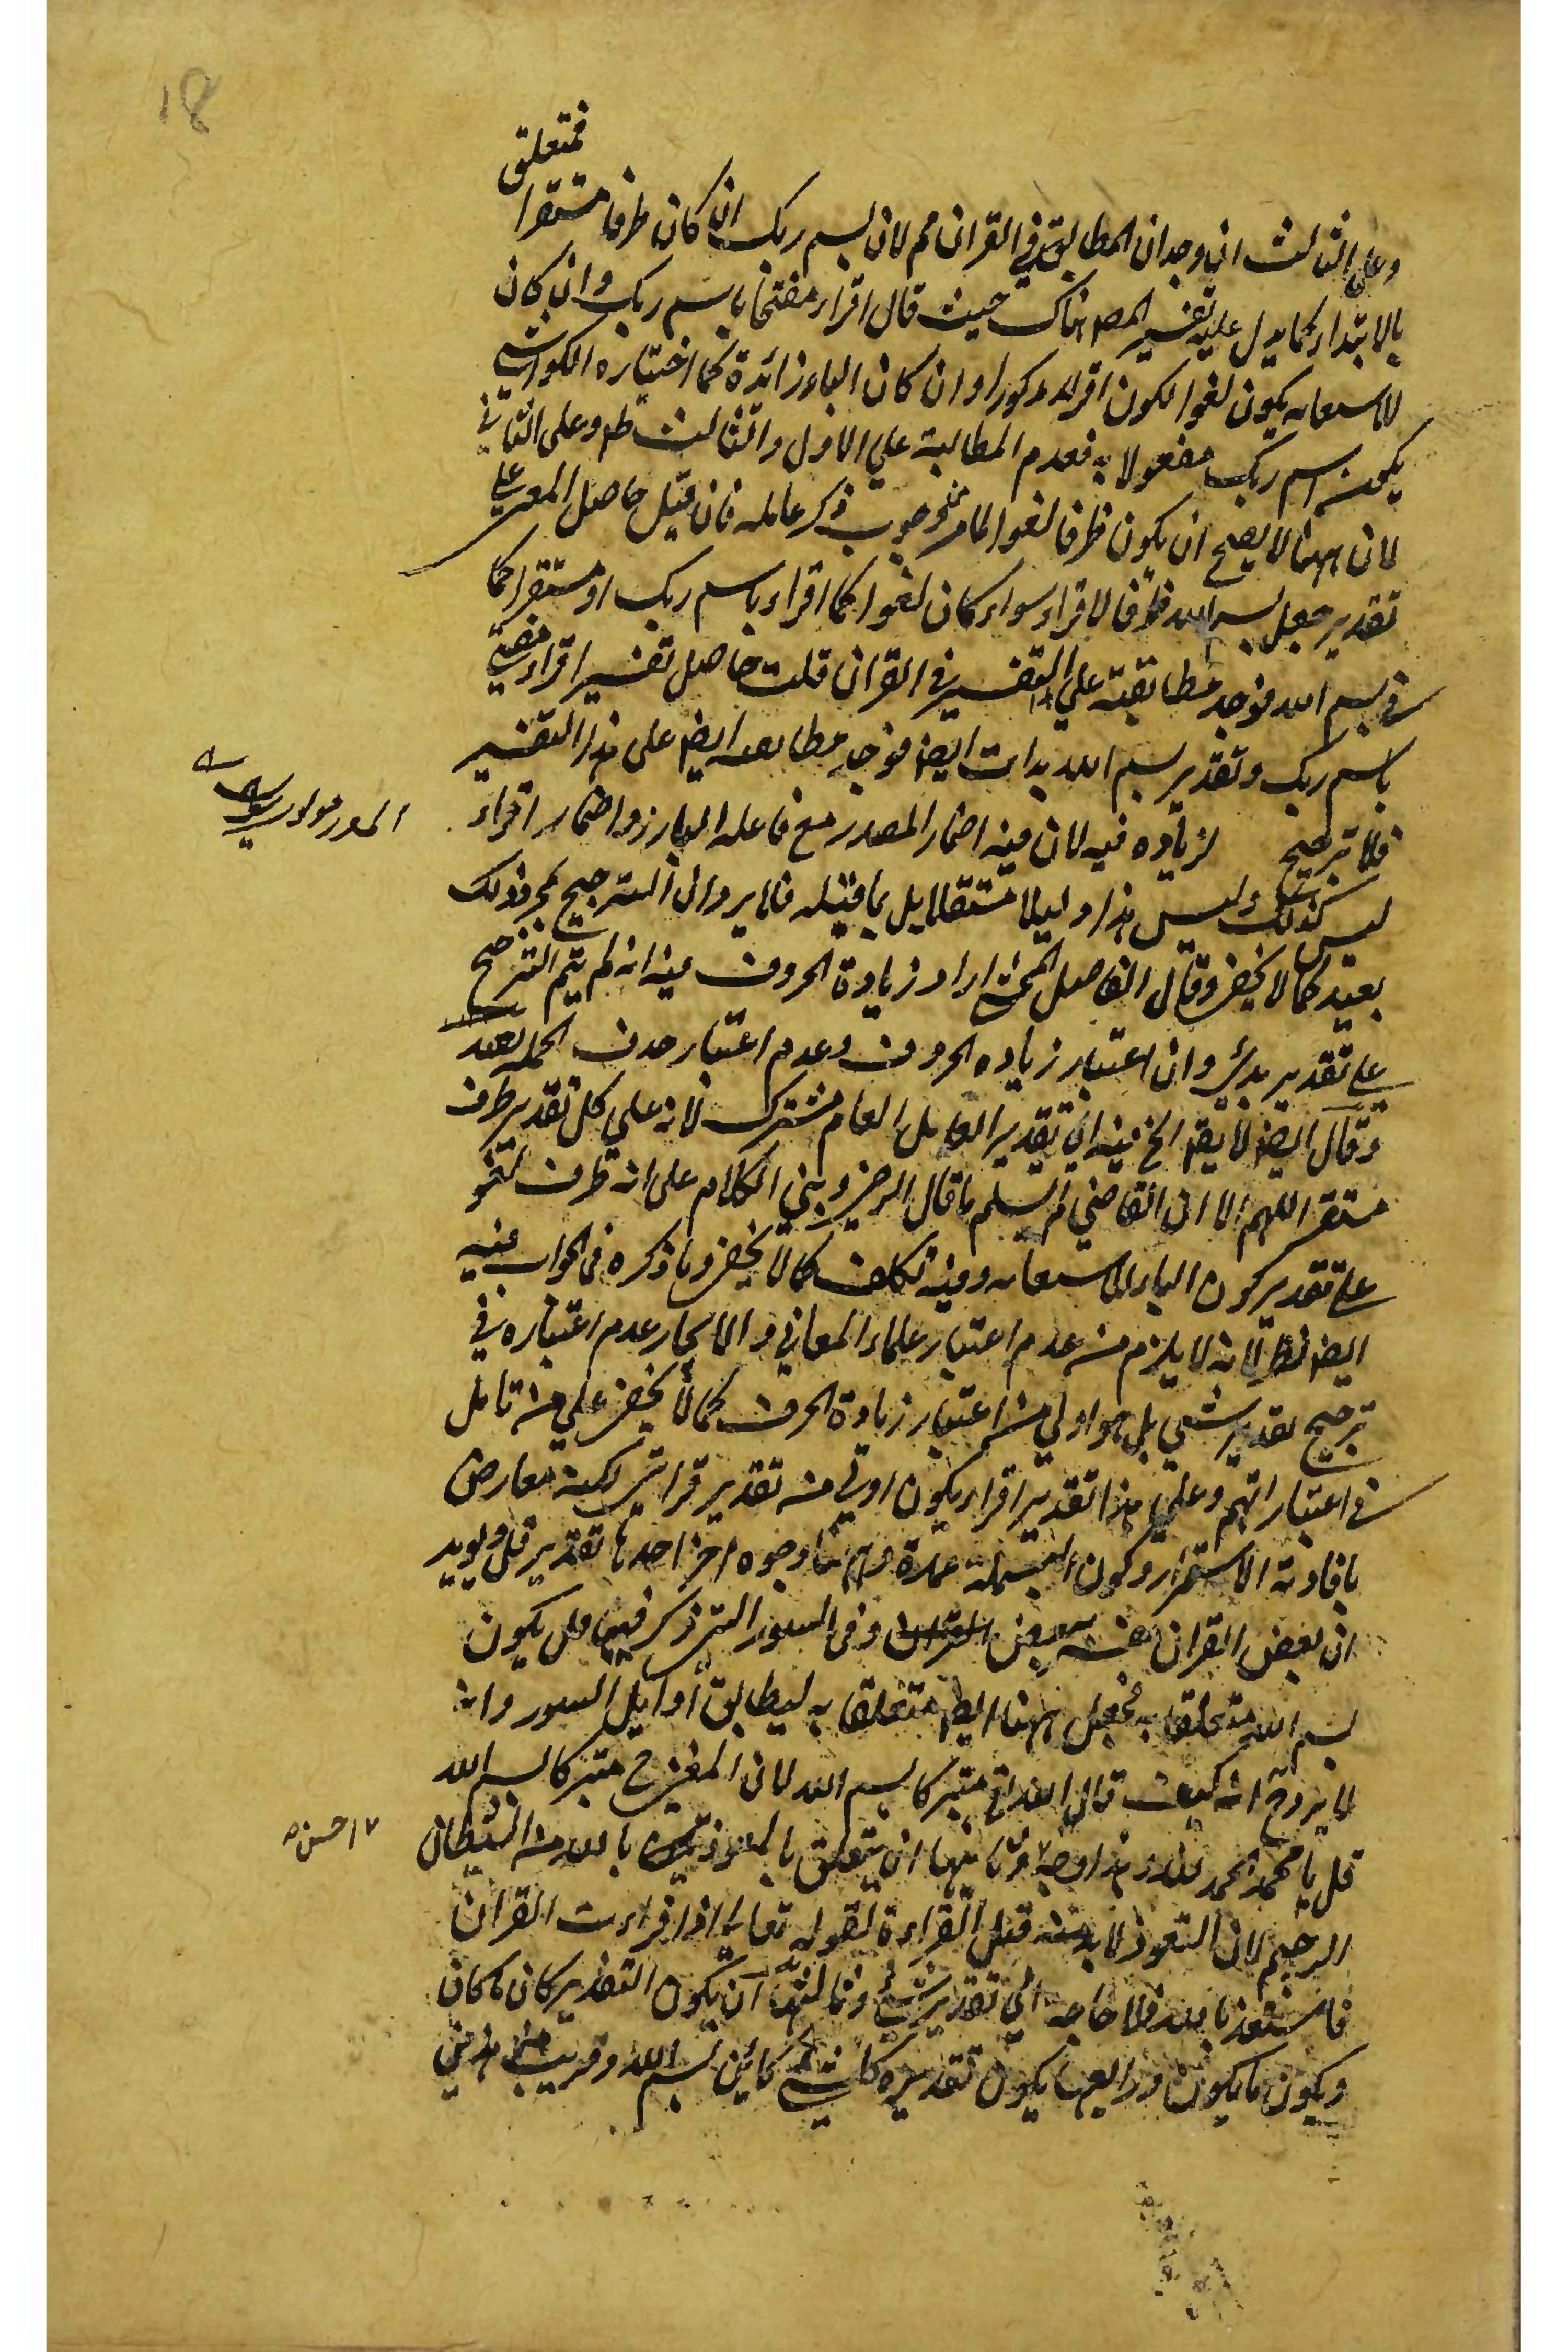 18
فمتعلق
وعلى الثالث ان وجدان المطابقة في القران مم لان بسم ربك ان كان ظرفا مستقرا
بالابتداء كما يدل عليه تفسير المص هناك حيث قال اقراء مفتتحا باسم ربك وان كان
للاستعانه يكون لغوا لكون اقراء مذكورا وان كان الباء زائدة كما اختياره الكواشي
يكون اسم ربك مفعولا به فعدم المطالبة علي الاول والثالث ظه وعلى الثاني
لان ههنا لا يصح ان يكون ظرفا لغوا لما مر من وجوب ذكر عامله فان قيل حاصل المعنى على
تقدير جعل بسم الله ظرفا لاقراء سواء كان لغوا كما اقراء باسم ربك او مستقرا كما
في بسم الله فوجد مطابقته علي التفسير في القران قلت حاصل تفسير اقراء مفتتحا
باسم ربك وتقدير بسم الله بدات ايضا فوجد مطابقته ايضا على هذا التفسير
فلا ترجيح لزياده فيه لان فيه اضمار المصدر مع فاعله البارز واضمار اقراء
ليس كذلك وليس هذا دليلا مستقلا بل بما قبله فلا يرد ان الترجيح بمجرد ذلك
بعيد كما لا يخفى وقال الفاضل المحشي اراد زيادة الحروف فيه انه لم يتم الترجيح
على تقدير بدئي وان اعتبار زياده الحروف وعدم اعتبار حذف الجمله بعيد
وقال ايضا لا يقه الخ فيه ان تقدير العامل العام مشترك لانه علي كل تقدير ظرف
مستقر اللهم الا ان القاضي لم يسلم ما قال الرضي وبني الكلام على انه ظرف لغو
على تقدير كون الباء للاستعانه وفيه تكلف كما لا يخفى وما ذكره في الجواب فيه
ايضا نظر لانه لا يلزم من عدم اعتبار علماء المعاني والايجاز عدم اعتباره في
ترجيح تقدير شي بل هو اولي من اعتبار زيادة الحرف كما لا يخفى علي من تامل
في اعتباراتهم وعلي هذا تقدير اقراء يكون اولي من تقدير قراءتي لكنه معارض
بافادته الاستمرار وكون البسملة عمدة وههنا وجوه اخر احدها تقدير قل ويويد
ان بعض القران يفسر بعض القران وفي السور التي ذكر فيها قل يكون
بسم الله متعلقا به فجعل ههنا ايضا متعلقا به ليطابق اوايل السور وانه
لا يرد ح انه كيف قال الله تع متبركا بسم الله لان المعنى ح متبركا بسم الله
قل يا محمد الحمد لله وهذا وجه وثانيها ان يتعلق بالمعوذ بالله من الشيطان
الرجيم لان التعوذ لا بد منه قبل القراءة لقوله تعالى اذا قراءت القران
فاستعذ بالله فلا حاجه الي تقدير شئ وثالثها ان يكون التقدير كان ما كان
ويكون ما يكون ورابعها يكون تقديره كل شي كائن بسم الله وقريب منه
احسن